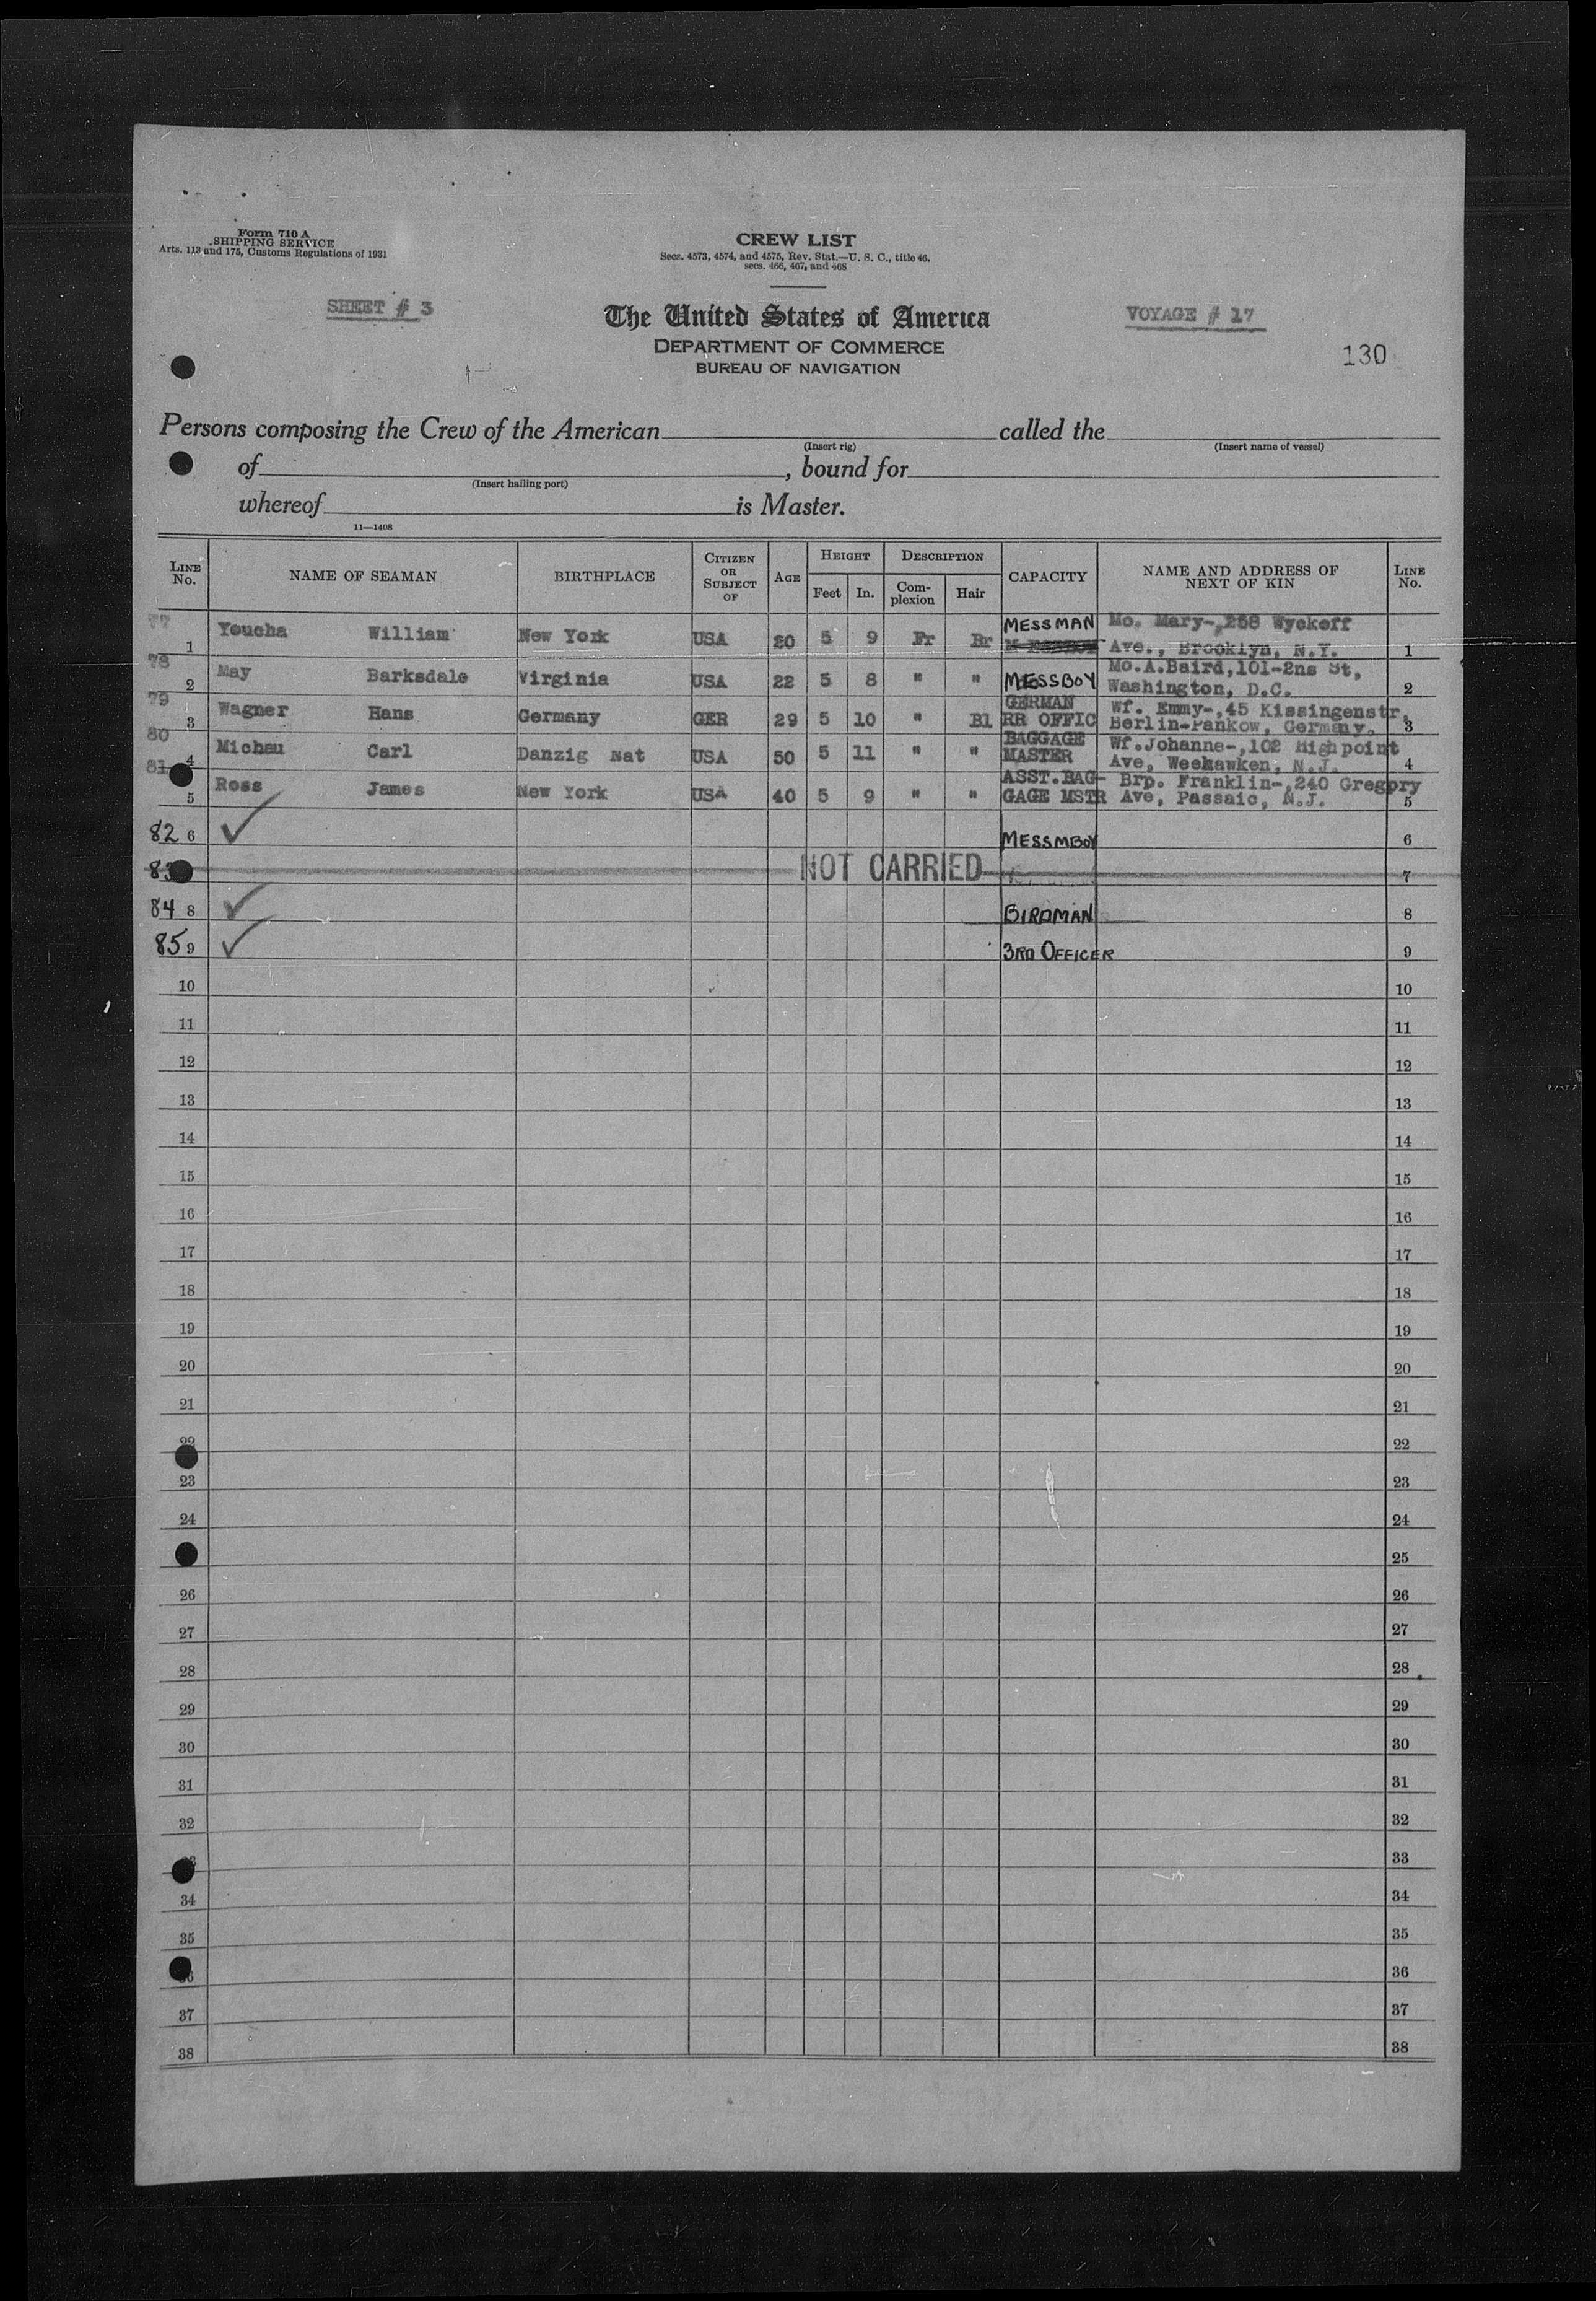 Form 710 A
SHIPPING SERVICE
Arts. 113 and 175, Customs Regulations of 1931
CREW LIST
Secs. 4573, 4574, and 4575, Rev. Stat.—U. S. C., title 46,
secs. 466, 467, and 468
SHEET # 3
The United States of America
VOYAGE # 17
DEPARTMENT OF COMMERCE
BUREAU OF NAVIGATION
130
Persons composing the Crew of the American called the
(Insert rig) (Insert name of vessel)
of , bound for
(Insert hailing port)
whereof is Master.
11—1408
LINE No. NAME OF SEAMAN BIRTHPLACE CITIZEN OR SUBJECT OF AGE HEIGHT Feet In. DESCRIPTION Complexion Hair CAPACITY NAME AND ADDRESS OF NEXT OF KIN LINE No.
77 1 Youcha William New York USA 20 5 9 Fr Br MESSMAN Mo. Mary-,258 Wyckoff Ave., Brooklyn, N.Y. 1
78 2 May Barksdale Virginia USA 22 5 8 " " MESSBOY Mo.A.Baird,101-2ns St, Washington, D.C. 2
79 3 Wagner Hans Germany GER 29 5 10 " Bl GERMAN RR OFFIC Wf. Emmy-,45 Kissingenstr, Berlin-Pankow, Germany. 3
80 4 Michau Carl Danzig Nat USA 50 5 11 " " BAGGAGE MASTER Wf.Johanne-,102 Highpoint Ave, Weehawken, N.J. 4
81 5 Ross James New York USA 40 5 9 " " ASST.BAG-GAGE MSTR Brp. Franklin-,240 Gregory Ave, Passaic, N.J. 5
82 6 ✓ MESSMBOY 6
83 NOT CARRIED 7
84 8 ✓ BIRDMAN 8
85 9 ✓ 3RD OFFICER 9
10 10
11 11
12 12
13 13
14 14
15 15
16 16
17 17
18 18
19 19
20 20
21 21
22 22
23 23
24 24
25
26 26
27 27
28 28
29 29
30 30
31 31
32 32
33
34 34
35 35
36 36
37 37
38 38